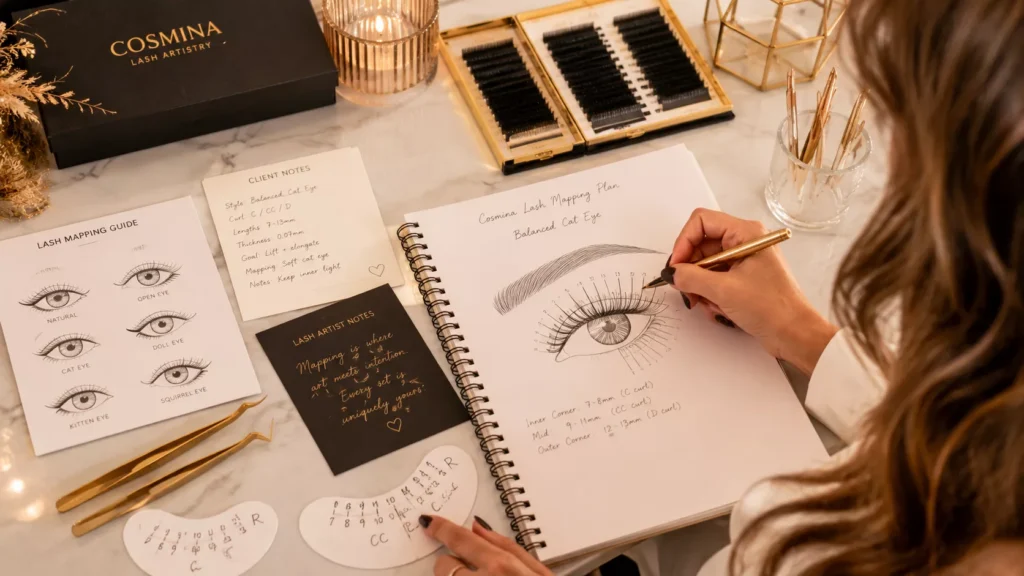 COSMINA
LASH ARTISTRY
LASH MAPPING GUIDE
NATURAL
OPEN EYE
CAT EYE
DOLL EYE
KITTEN EYE
SQUIRREL EYE
CLIENT NOTES
Style: Balanced Cat Eye
Curl: C / CC / D
Lengths: 7-13mm
Thickness: 0.07mm
Goal: Lift + elongate
Mapping: Soft cat eye
Notes: Keep inner light
LASH ARTIST NOTES
Mapping is where
art meets intention.
Every art is
uniquely yours
Cosmina Lash Mapping Plan
Balanced Cat Eye
Inner Corner: 7-8mm (C curl)
Mid: 9-11mm (CC curl)
Outer Corner: 12-13mm (D curl)
R
R
7 8 9 10
CC